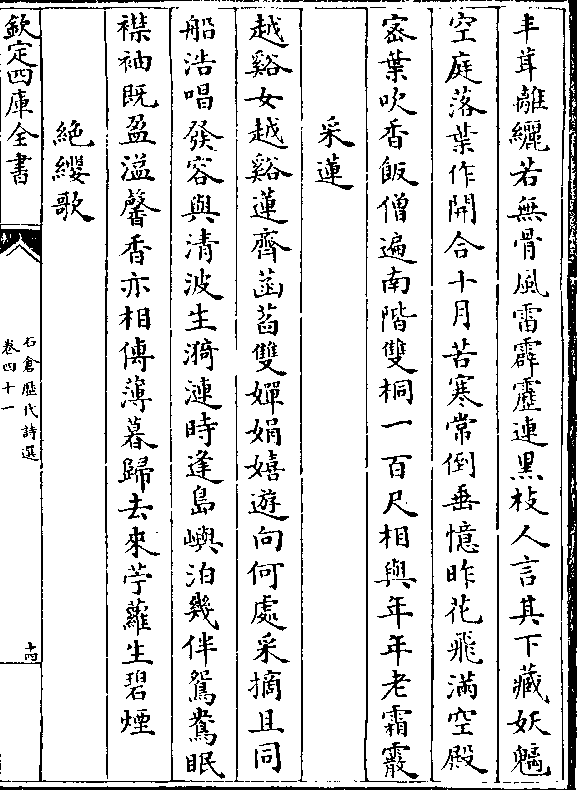 丰茸離纚若無骨風雷霹靂連黒枝人言其下藏妖魑
空庭落葉作開合十月苦寒常倒垂憶昨花飛滿空殿
宻葉吹香飯僧遍南階雙桐一百尺相與年年老霜霰
采蓮
越谿女越谿蓮齊菡萏雙嬋娟嬉遊向何處采摘且同
船浩唱發容與清波生漪漣時逢島嶼泊幾伴鴛鴦眠
襟袖既盈溢馨香亦相傳薄暮歸去來苧蘿生碧煙
絶纓歌
欽定四庫全書
石倉歴代詩選
卷四十一
十四